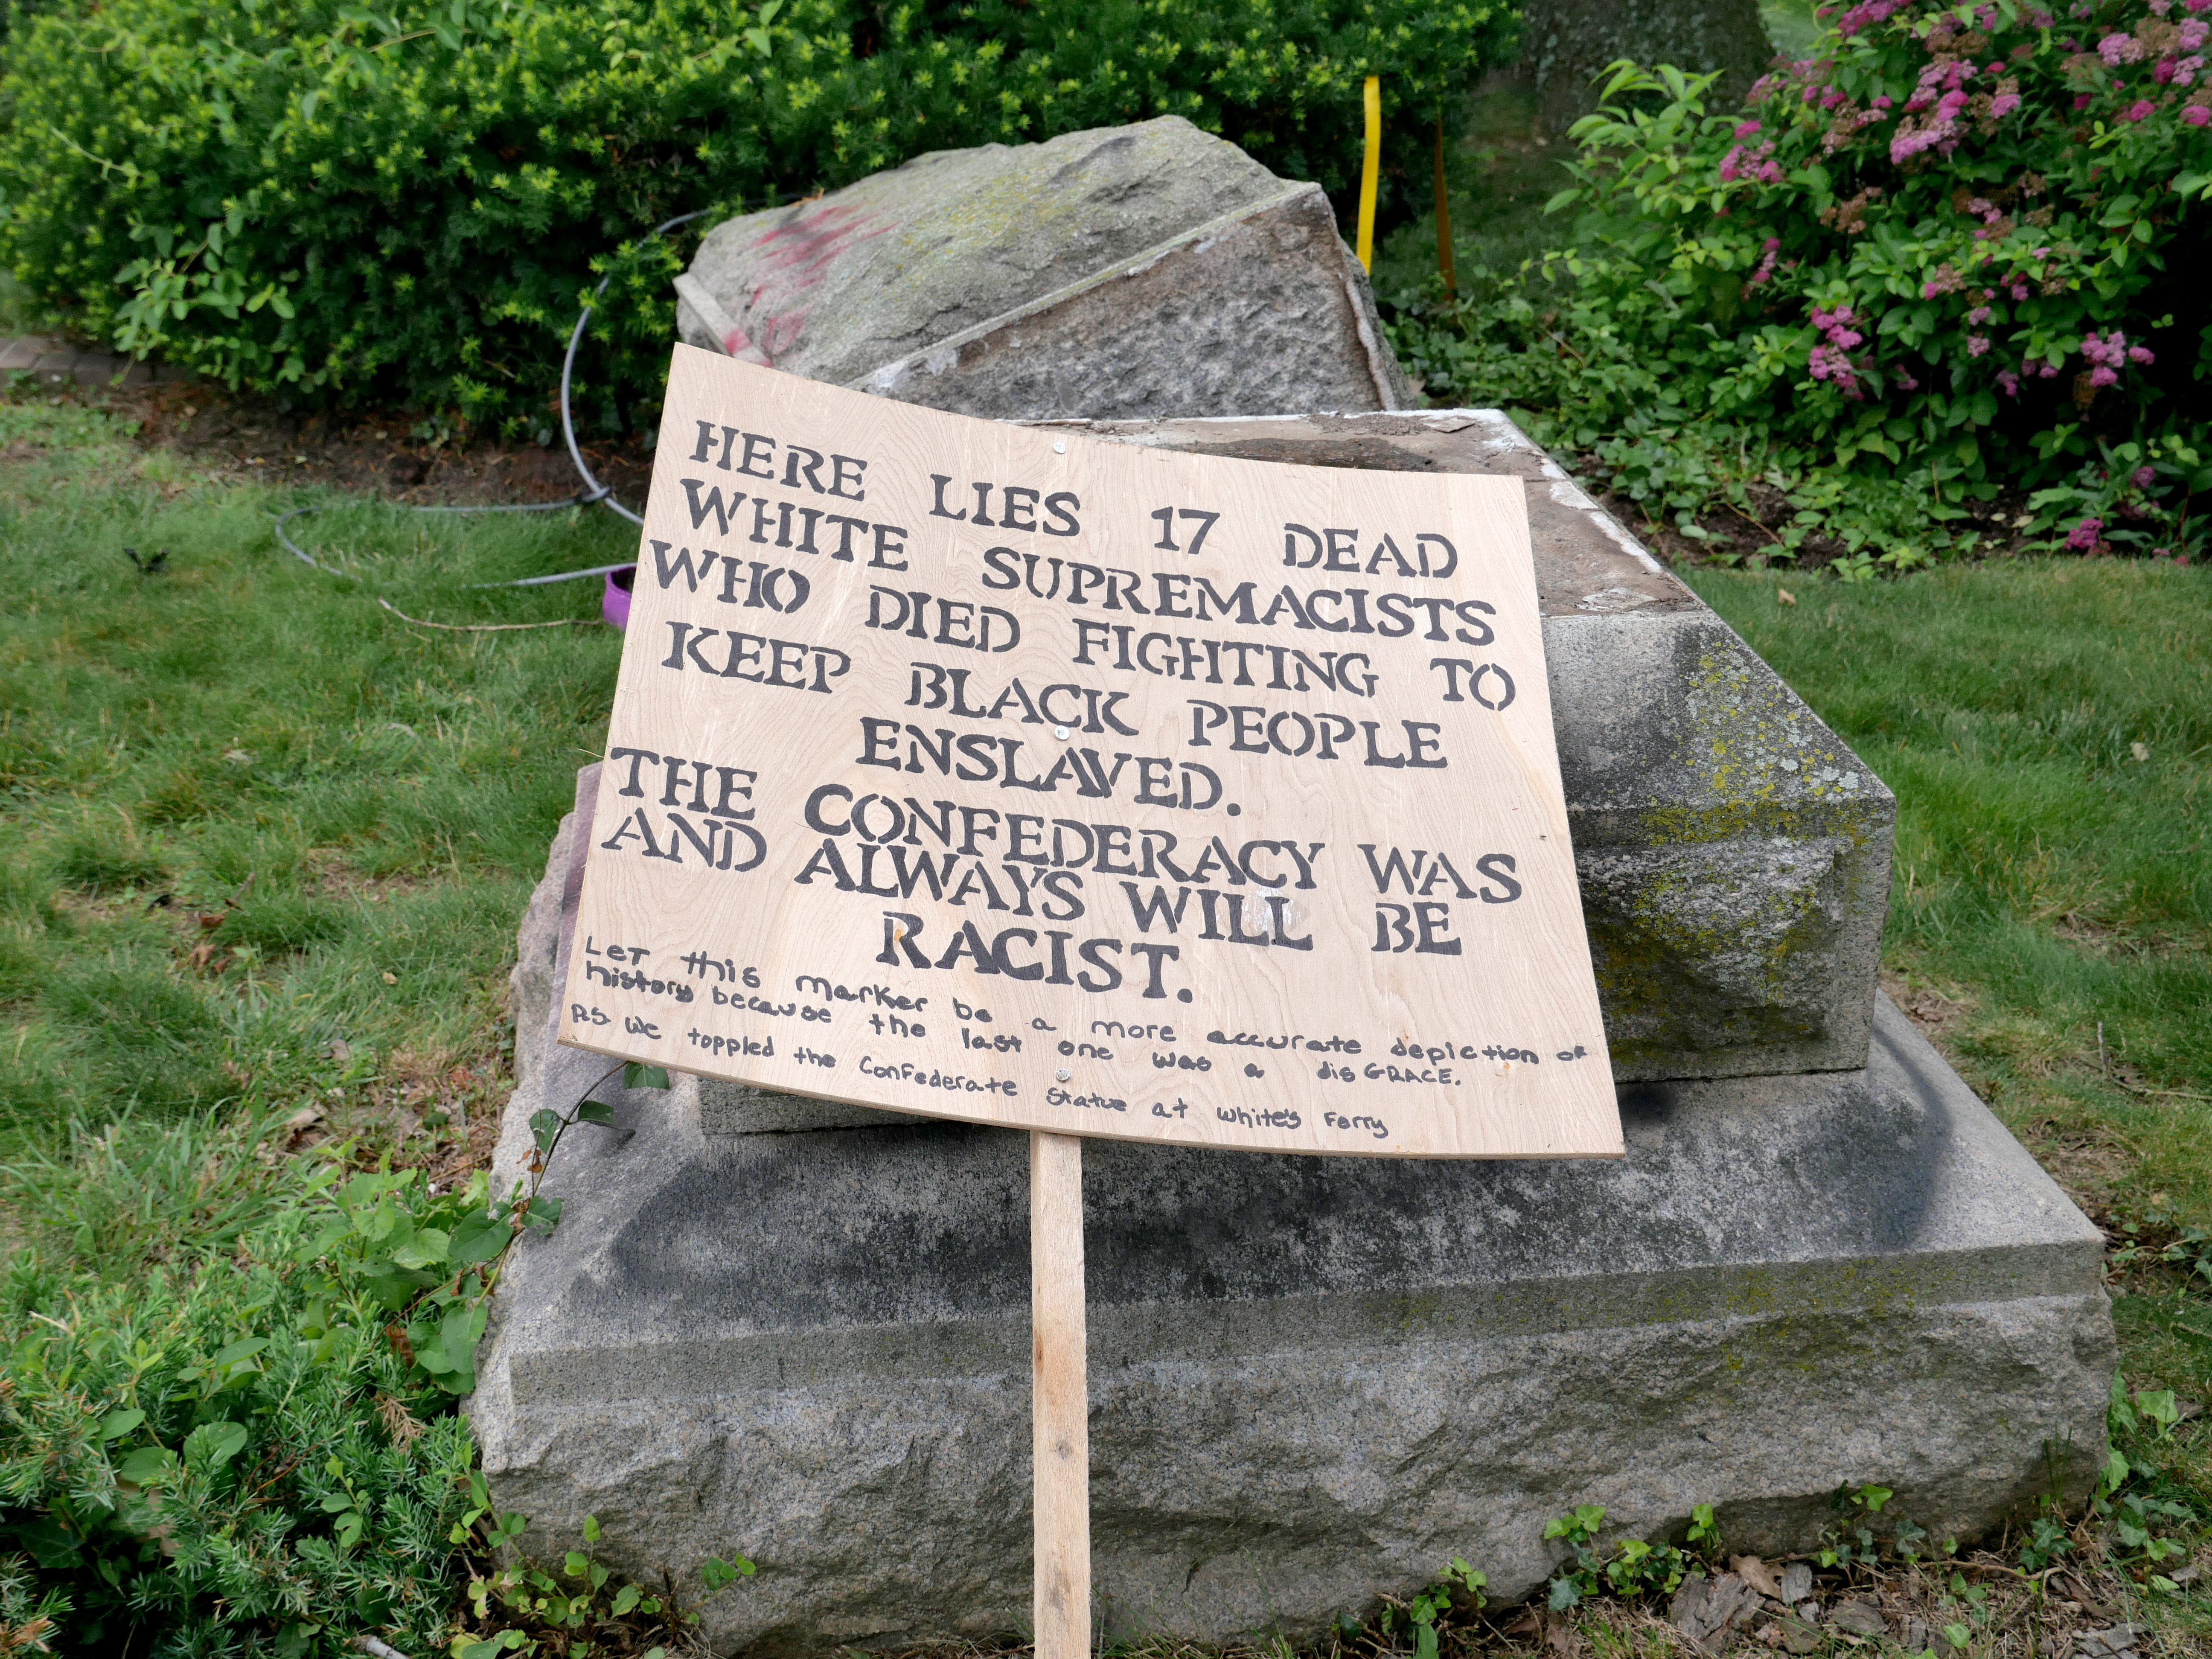 HERE LIES 17 DEAD
WHITE SUPREMACISTS
WHO DIED FIGHTING TO
KEEP BLACK PEOPLE
ENSLAVED.
THE CONFEDERACY WAS
AND ALWAYS WILL BE
RACIST.
Let this marker be a more accurate depiction of
history because the last one was a disGRACE.
P.S. We toppled the Confederate Statue at White's Ferry